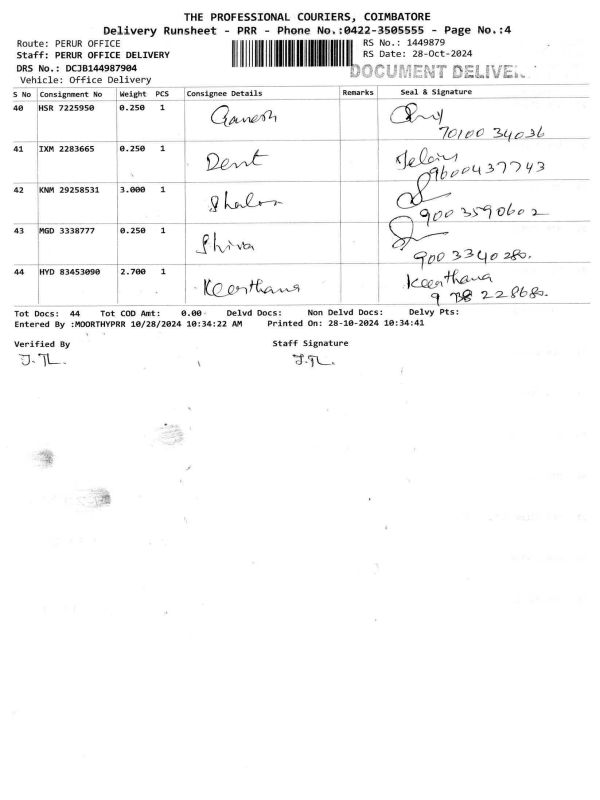 THE PROFESSIONAL COURIERS, COIMBATORE
Delivery Runsheet - PRR - Phone No.:0422-3505555 - Page No.:4
Route: PERUR OFFICE RS No.: 1449879
Staff: PERUR OFFICE DELIVERY RS Date: 28-Oct-2024
DRS No.: DCJB144987904 DOCUMENT
Vehicle: Office Delivery
S No Consignment No Weight PCS Consignee Details Remarks Seal & Signature
40 HSR 7225950 0.250 1 Ganesh
70100 34036
41 IXM 2283665 0.250 1 Dent
9600437743
42 KNM 29258531 3.000 1
900 3590602
43 MGD 3338777 0.250 1 Shiva
900 3340280.
44 HYD 83453090 2.700 1 Keerthana Keerthana
228680.
Tot Docs: 44 Tot COD Amt: 0.00 Delvd Docs: Non Delvd Docs: Delvy Pts:
Entered By :MOORTHYPRR 10/28/2024 10:34:22 AM Printed On: 28-10-2024 10:34:41
Verified By Staff Signature